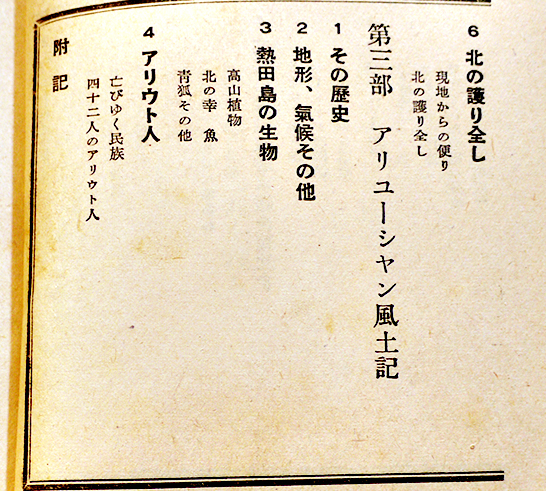 6 北の護り全し
現地からの便り
北の護り全し
第三部 アリユーシャン風土記
1 その歴史
2 地形、氣候その他
3 熱田島の生物
高山植物
北の幸 魚
青狐その他
4 アリウト人
亡びゆく民族
四十二人のアリウト人
附記